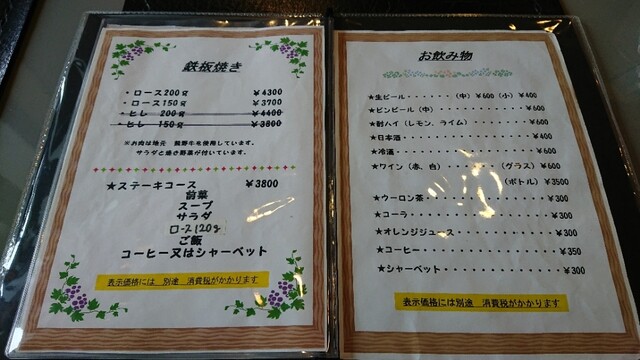 鉄板焼き
・ロース200g ￥4300
・ロース150g ￥3700
・ヒレ 200g ￥4400
・ヒレ 150g ￥3800
※お肉は地元 熊野牛を使用しています。
サラダと焼き野菜が付いています。
★ステーキコース ￥3800
前菜
スープ
サラダ
ロース120g
ご飯
コーヒー又はシャーベット
表示価格には 別途 消費税がかかります
お飲み物
★生ビール・・・・・・・(中)￥600 (小)￥400
★ビンビール(中)・・・・・・・・・・￥600
★酎ハイ(レモン、ライム)・・・・・・￥600
★日本酒・・・・・・・・・・・・・・￥400
★冷酒・・・・・・・・・・・・・・・￥600
★ワイン(赤、白)・・・・・・(グラス)￥600
(ボトル)￥3500
★ウーロン茶・・・・・・・・・・・・￥300
★コーラ・・・・・・・・・・・・・・￥300
★オレンジジュース・・・・・・・・・￥300
★コーヒー・・・・・・・・・・・・・￥350
★シャーベット・・・・・・・・・・・￥300
表示価格には別途 消費税がかかります